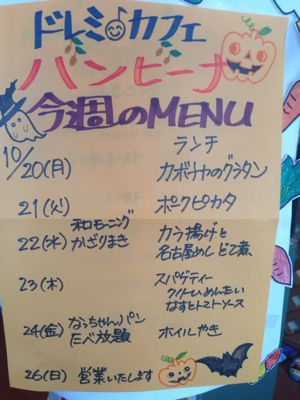 ドレミ♪カフェ
ハンヒーナ
今週のMENU
ランチ
10/20(月) カボチャのグラタン
21(火) ポークピカタ
22(水) 和モーニング かざりまき カラ揚げと 名古屋めし どて煮
23(木) スパゲティー クリームめんたい なすとトマトソース
24(金) なっちゃんパン 食べ放題 ホイルやき
26(日) 営業いたします